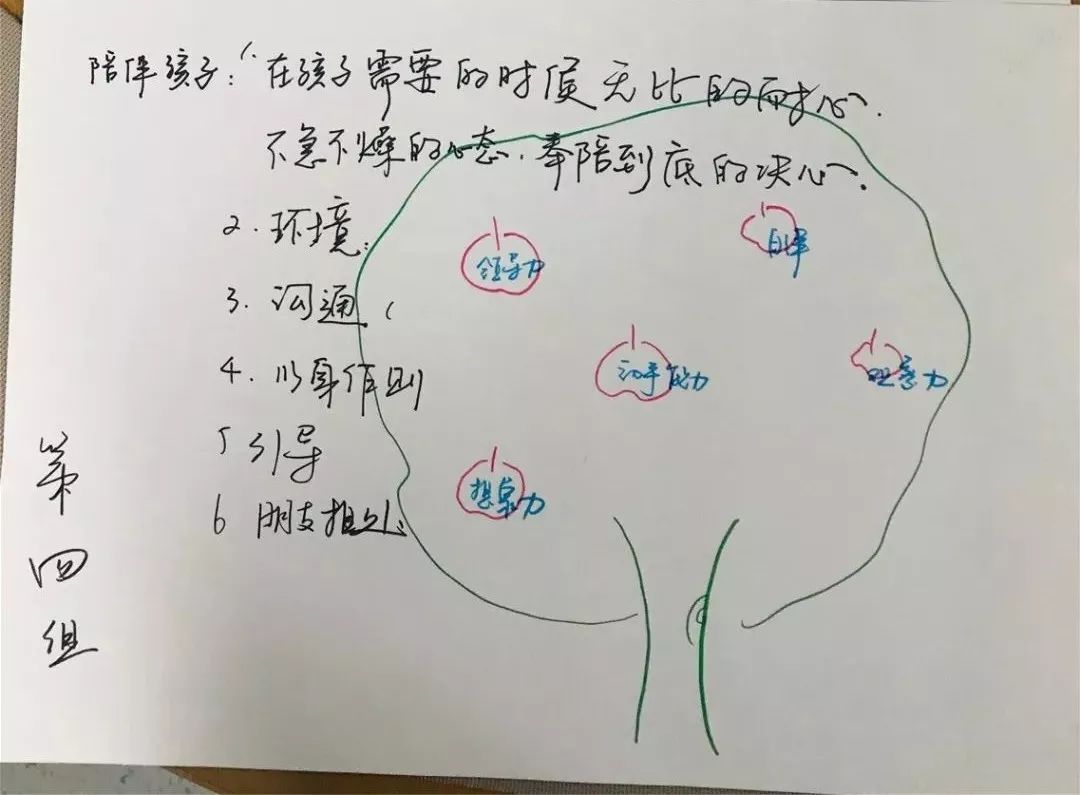 陪伴孩子：1.在孩子需要的时候无比的耐心.
不急不燥的心态.奉陪到底的决心.
2.环境:
3.沟通
4.以身作则
5 引导
6 朋友相处:
第四组
领导力
自律
动手能力
注意力
想象力